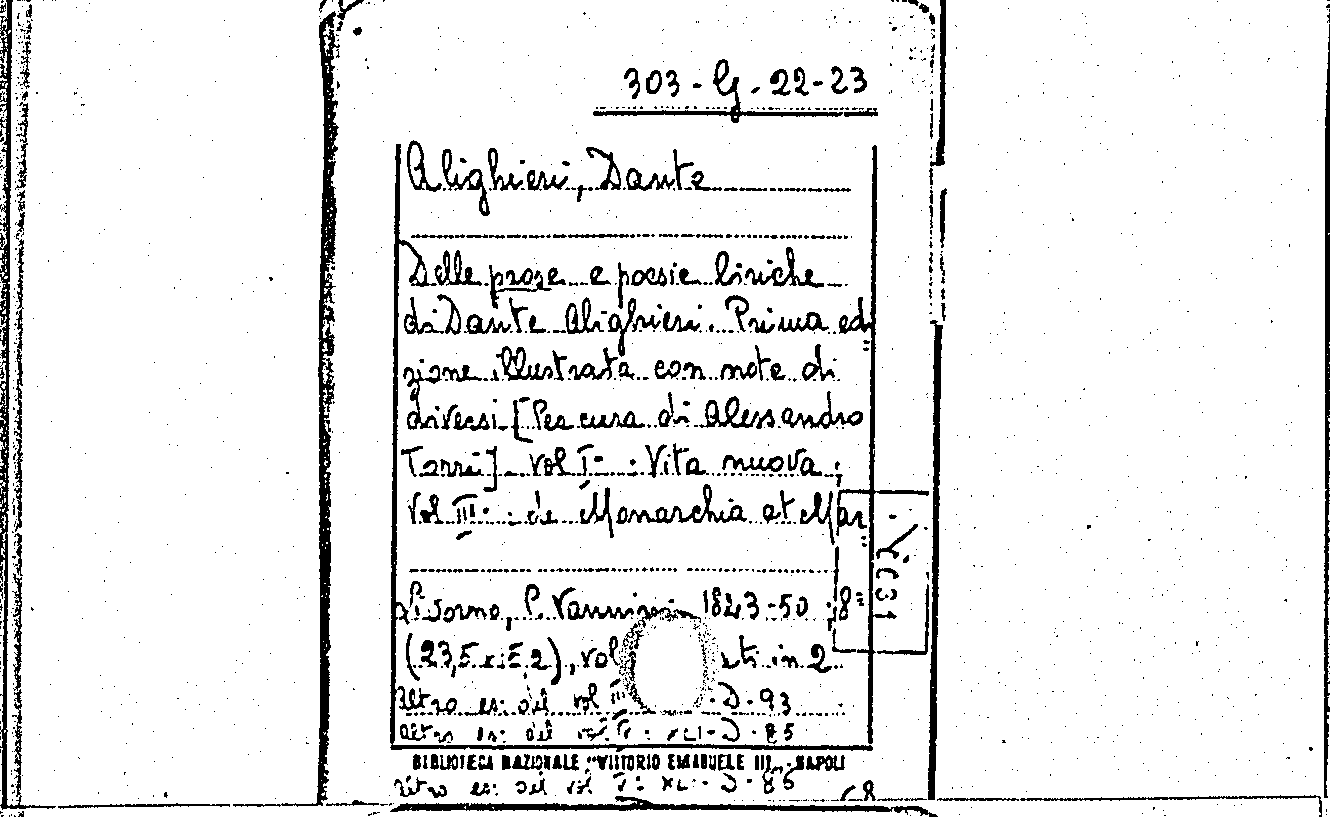 303-G.22-23
Alighieri, Dante
Delle prose e poesie liriche
di Dante Alighieri. Prima edi
zione illustrata con note di
diversi [Per cura di Alessandro
Torri]. Vol I- : Vita nuova ;
Vol III- : de Monarchia et Mar
Livorno, P. Vannini 1843-50 ; 8=
(23,5 x 15,2), vol in 2
Altro es: del vol D-93
Altro es: del D-85
BIBLIOTECA NAZIONALE "VITTORIO EMANUELE III" - NAPOLI
altro es: del vol V: XLI-D-86